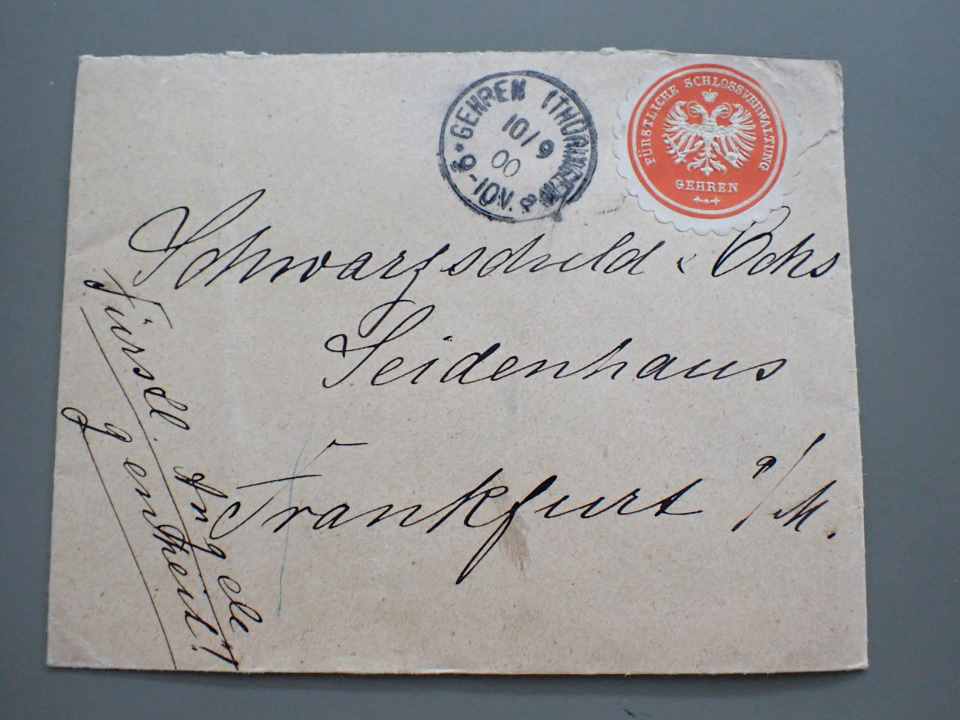 GEHREN (THÜRINGEN)
10/9
00
* 9-10V. *
FÜRSTLICHE SCHLOSSVERWALTUNG
GEHREN
Schwarzschild & Ochs
Seidenhaus
Frankfurt a/M.
Fürstl. Angele
genheit!